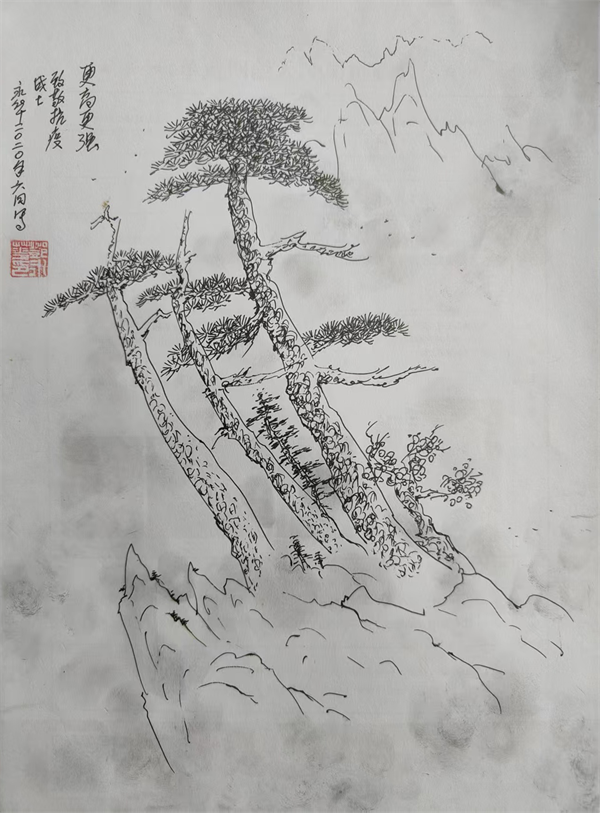 更高更强
致敬抗疫
战士
二〇二〇年六月写